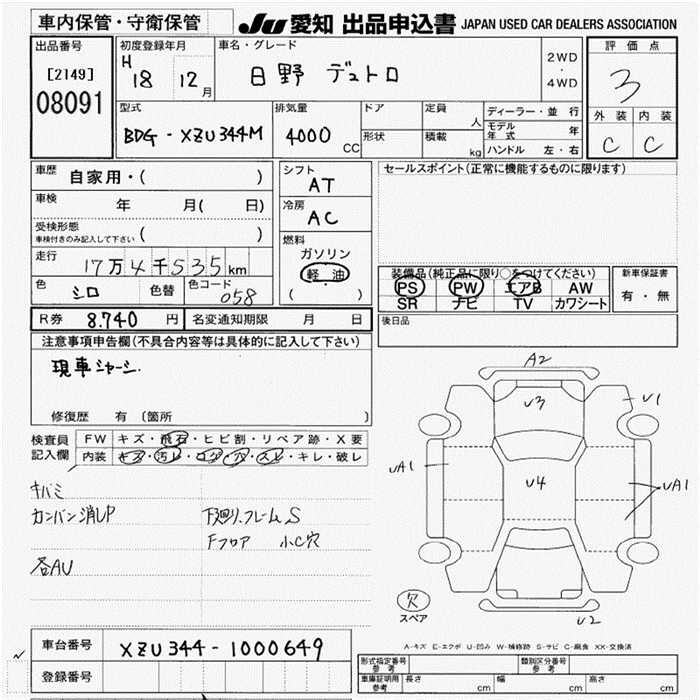 車内保管・守衛保管 JU 愛知 出品申込書 JAPAN USED CAR DEALERS ASSOCIATION
出品番号 初度登録年月 車名・グレード 2WD・4WD 評価点
[2149] H 18 12月 日野 デュトロ 3
08091 外装 内装
C C
型式 排気量 ドア 定員 人 ディーラー・並行
BDG-XZU344M 4000 CC 形状 積載 kg モデル年式 年
ハンドル 左・右
車歴 自家用・( ) シフト AT セールスポイント(正常に機能するものに限ります)
車検 年 月( 日) 冷房 AC
受検形態 ( )
車検付きのみ記入して下さい
燃料
走行 17万4千535km ガソリン
軽油
( )
色 シロ 色替 色コード 058
装備品(純正品に限り○をつけてください) 新車保証書
PS PW エアB AW 有・無
SR ナビ TV カワシート
R券 8.740 円 名変通知期限 月 日 後日品
注意事項申告欄(不具合内容等は具体的に記入して下さい)
現車シャーシ.
修復歴 有 (箇所 )
検査員記入欄 FW キズ・飛石・ヒビ割・リペア跡・X要
内装 キズ・汚レ・コゲ・穴・スレ・キレ・破レ
キバミ
カンバン消しP 下廻り.フレームS
Fフロア 小C穴
各AU
A2
U3 U1
UA1 U4 UA1
欠 スペア U2
A-キズ E-エクボ U-凹み W-補修跡 S-サビ C-腐食 XX-交換済
車台番号 XZU344-1000649
登録番号
型式指定番号 参考 類別区分番号 参考
車庫証明用 参考 長さ cm 幅 cm 高さ cm